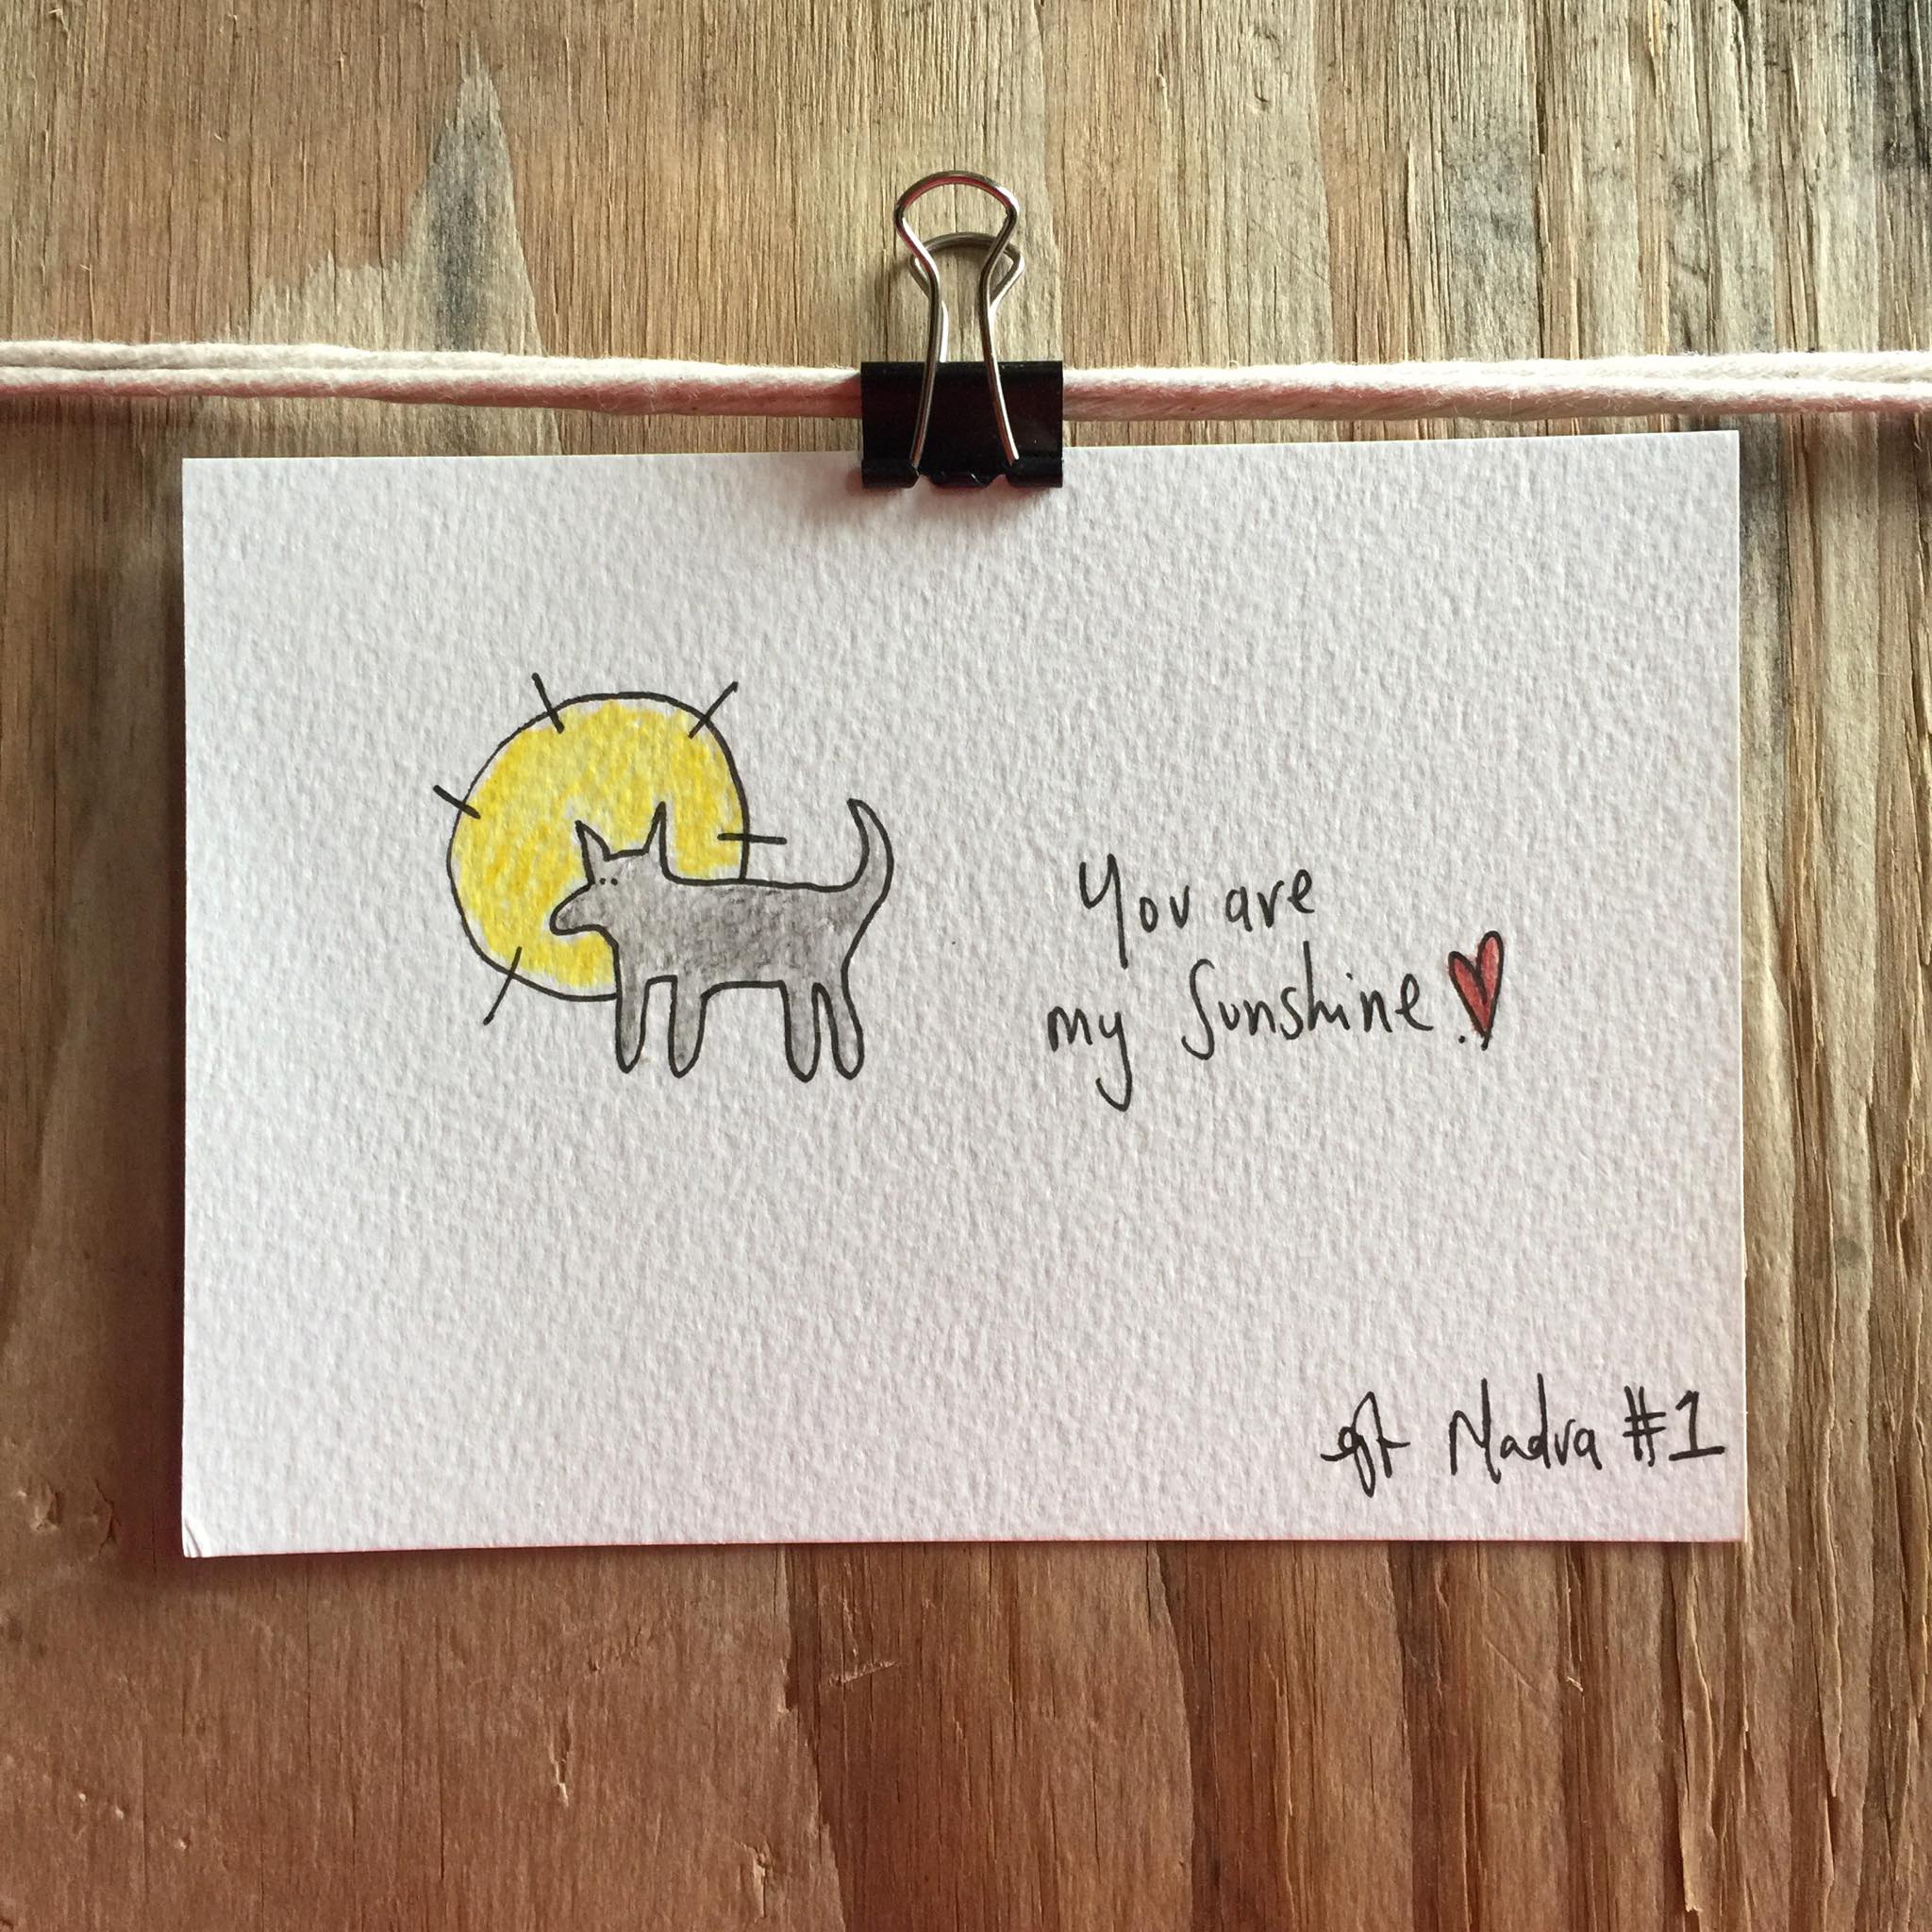 You are
my Sunshine.
Madra #1